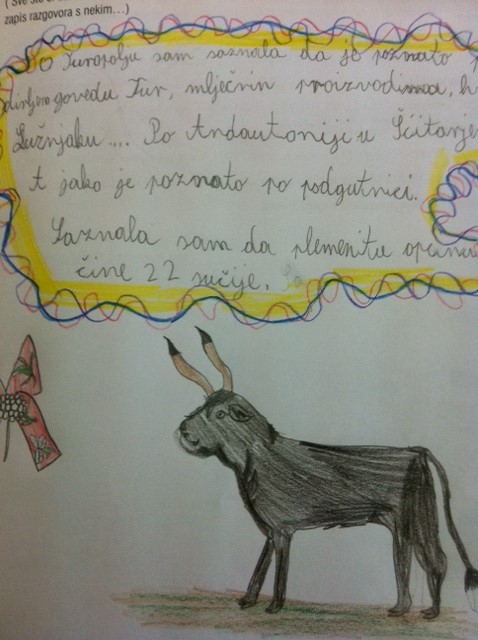 ( Sve što
zapis razgovora s nekim...)
O Turopolju sam saznala da je poznato
divljem govedu Tur, mlječnin proizvodima,
Lužnjaku.... Po Andautoniji u Šćitarje
T jako je poznato po podgutnici.
Saznala sam da plemenitu općinu
čine 22 sučije.